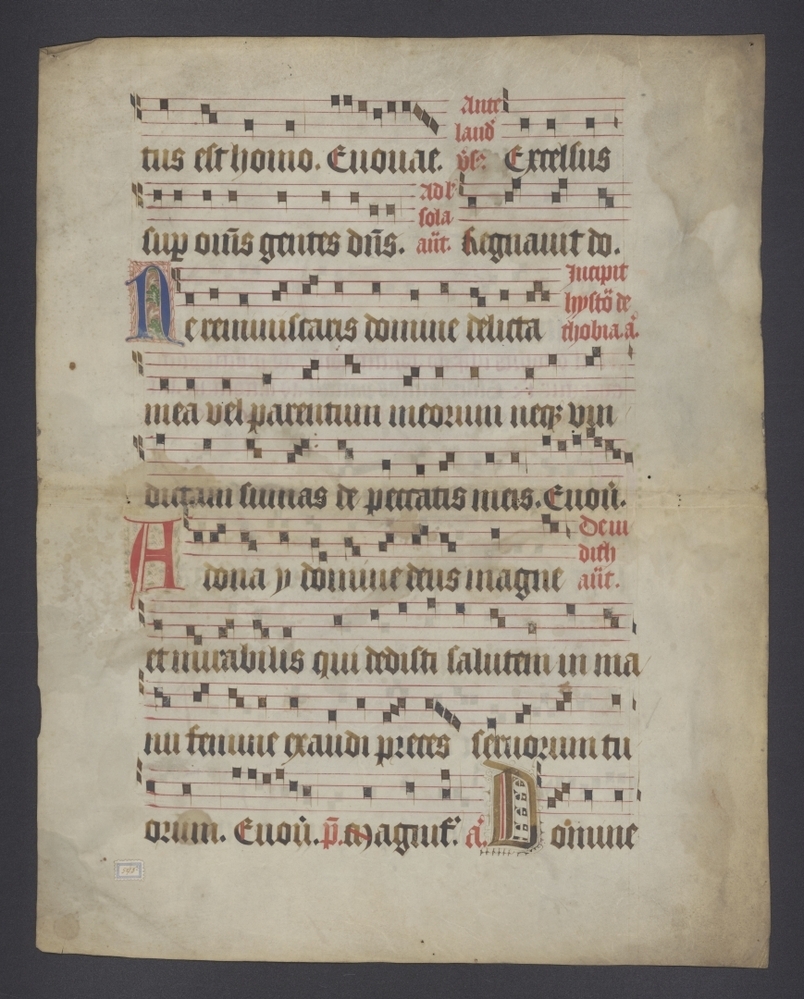 Ante
laud
tus est homo. Euouae. ps: Excelsus
Ad
sola
sup om̄s gentes dn̄s. an̄t. Regnauit do.
Incipit
hystō de
Ne reminiscaris domine delicta thobia. a̅.
mea vel parentum meorum neqȝ vin
dictam sumas de peccatis meis. Euoū.
De iu
dith
Adona y domine deus magne an̄t.
et mirabilis qui dedisti salutem in ma
nu femine exaudi preces seruorum tu
orum. Euoū. p̄. Magnif. a̅. Domine